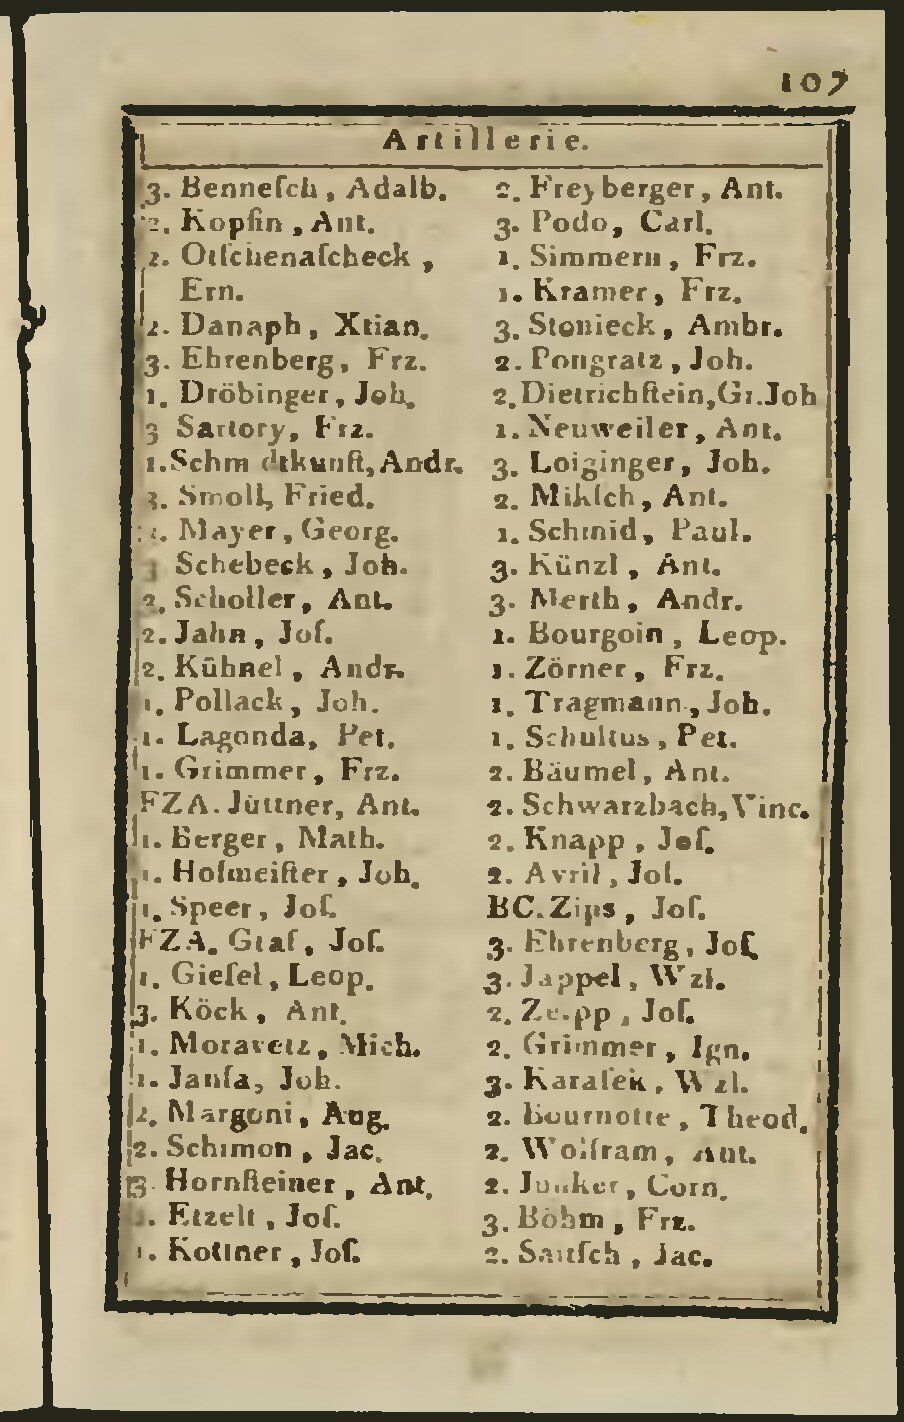 107
Artillerie.
3. Benneſch, Adalb.
2. Kopfin, Ant.
2. Otſchenaſcheck,
Ern.
2. Danaph, Xtian.
3. Ehrenberg, Frz.
1. Dröbinger, Joh.
3 Sartory, Frz.
1. Andr.
3. Smoll, Fried.
Mayer, Georg.
3 Schebeck, Joh.
2. Scholler, Ant.
2. Jahn, Joſ.
2. Kühnel, Andr.
1. Pollack, Joh.
1. Lagonda, Pet.
1. Grimmer, Frz.
FZA. Jüttner, Ant.
1. Berger, Math.
1. Hofmeiſter, Joh.
1. Speer, Joſ.
FZA. Graf, Joſ.
1. Gieſel, Leop.
3. Köck, Ant.
1. Moravetz, Mich.
1. Janſa, Joh.
2. Margoni, Aug.
2. Schimon, Jac.
3. Hornſteiner, Ant.
1. Etzelt, Joſ.
1. Kottner, Joſ.
2. Freyberger, Ant.
3. Podo, Carl.
1. Simmern, Frz.
1. Kramer, Frz.
3. Stonieck, Ambr.
2. Pongratz, Joh.
2. Dietrichſtein, Gr. Joh
1. Neuweiler, Ant.
3. Loiginger, Joh.
2. Mikſch, Ant.
1. Schmid, Paul.
3. Künzl, Ant.
3. Merth, Andr.
1. Bourgoin, Leop.
1. Zörner, Frz.
1. Tragmann, Joh.
1. Schultus, Pet.
2. Bäumel, Ant.
2. Schwarzbach, Vinc.
2. Knapp, Joſ.
2. Avril, Joſ.
BC. Zips, Joſ.
3. Ehrenberg, Joſ.
3. Jappel, Wzl.
2. Joſ.
2. Grimmer, Ign.
3. Karaſek, Wzl.
2. Bournotte, Theod.
2. Wolfram, Ant.
2. Junker, Corn.
3. Böhm, Frz.
2. Jac.